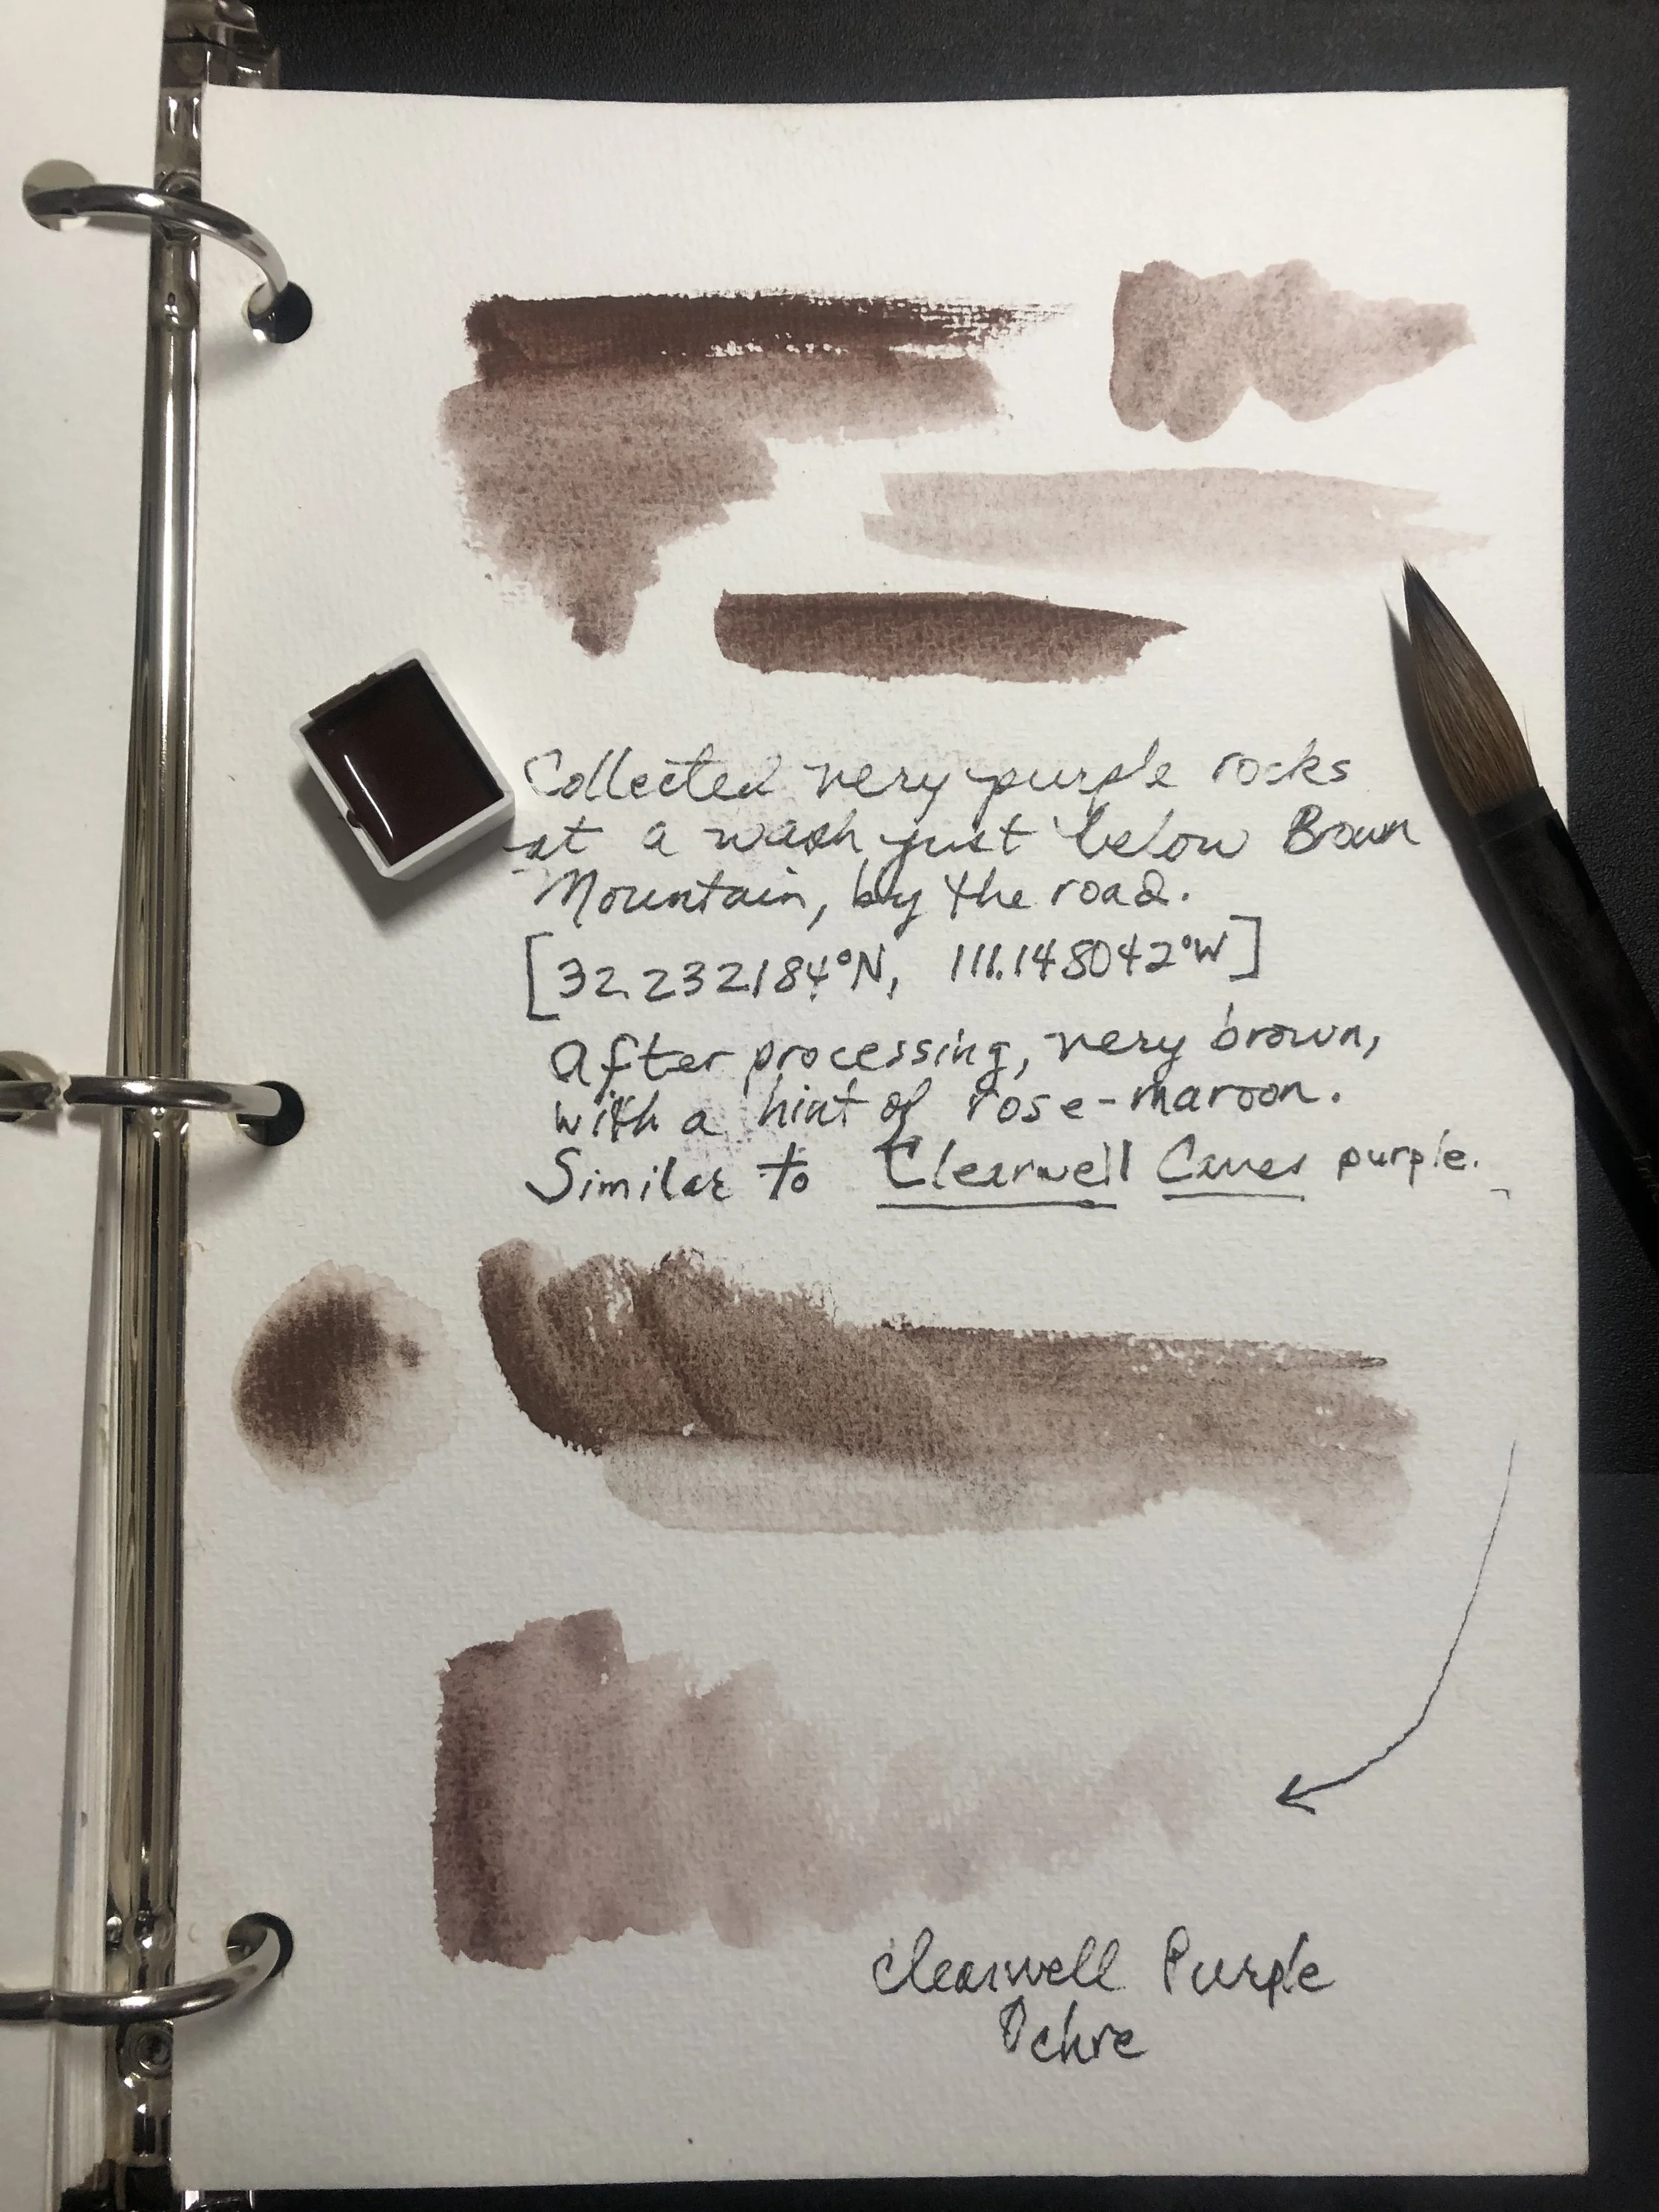 Collected very purple rocks
at a wash just below Brown
Mountain, by the road.
[32.232184°N, 111.148042°W]
After processing, very brown,
with a hint of rose-maroon.
Similar to Clearwell Caves purple.
Clearwell Purple
Ochre